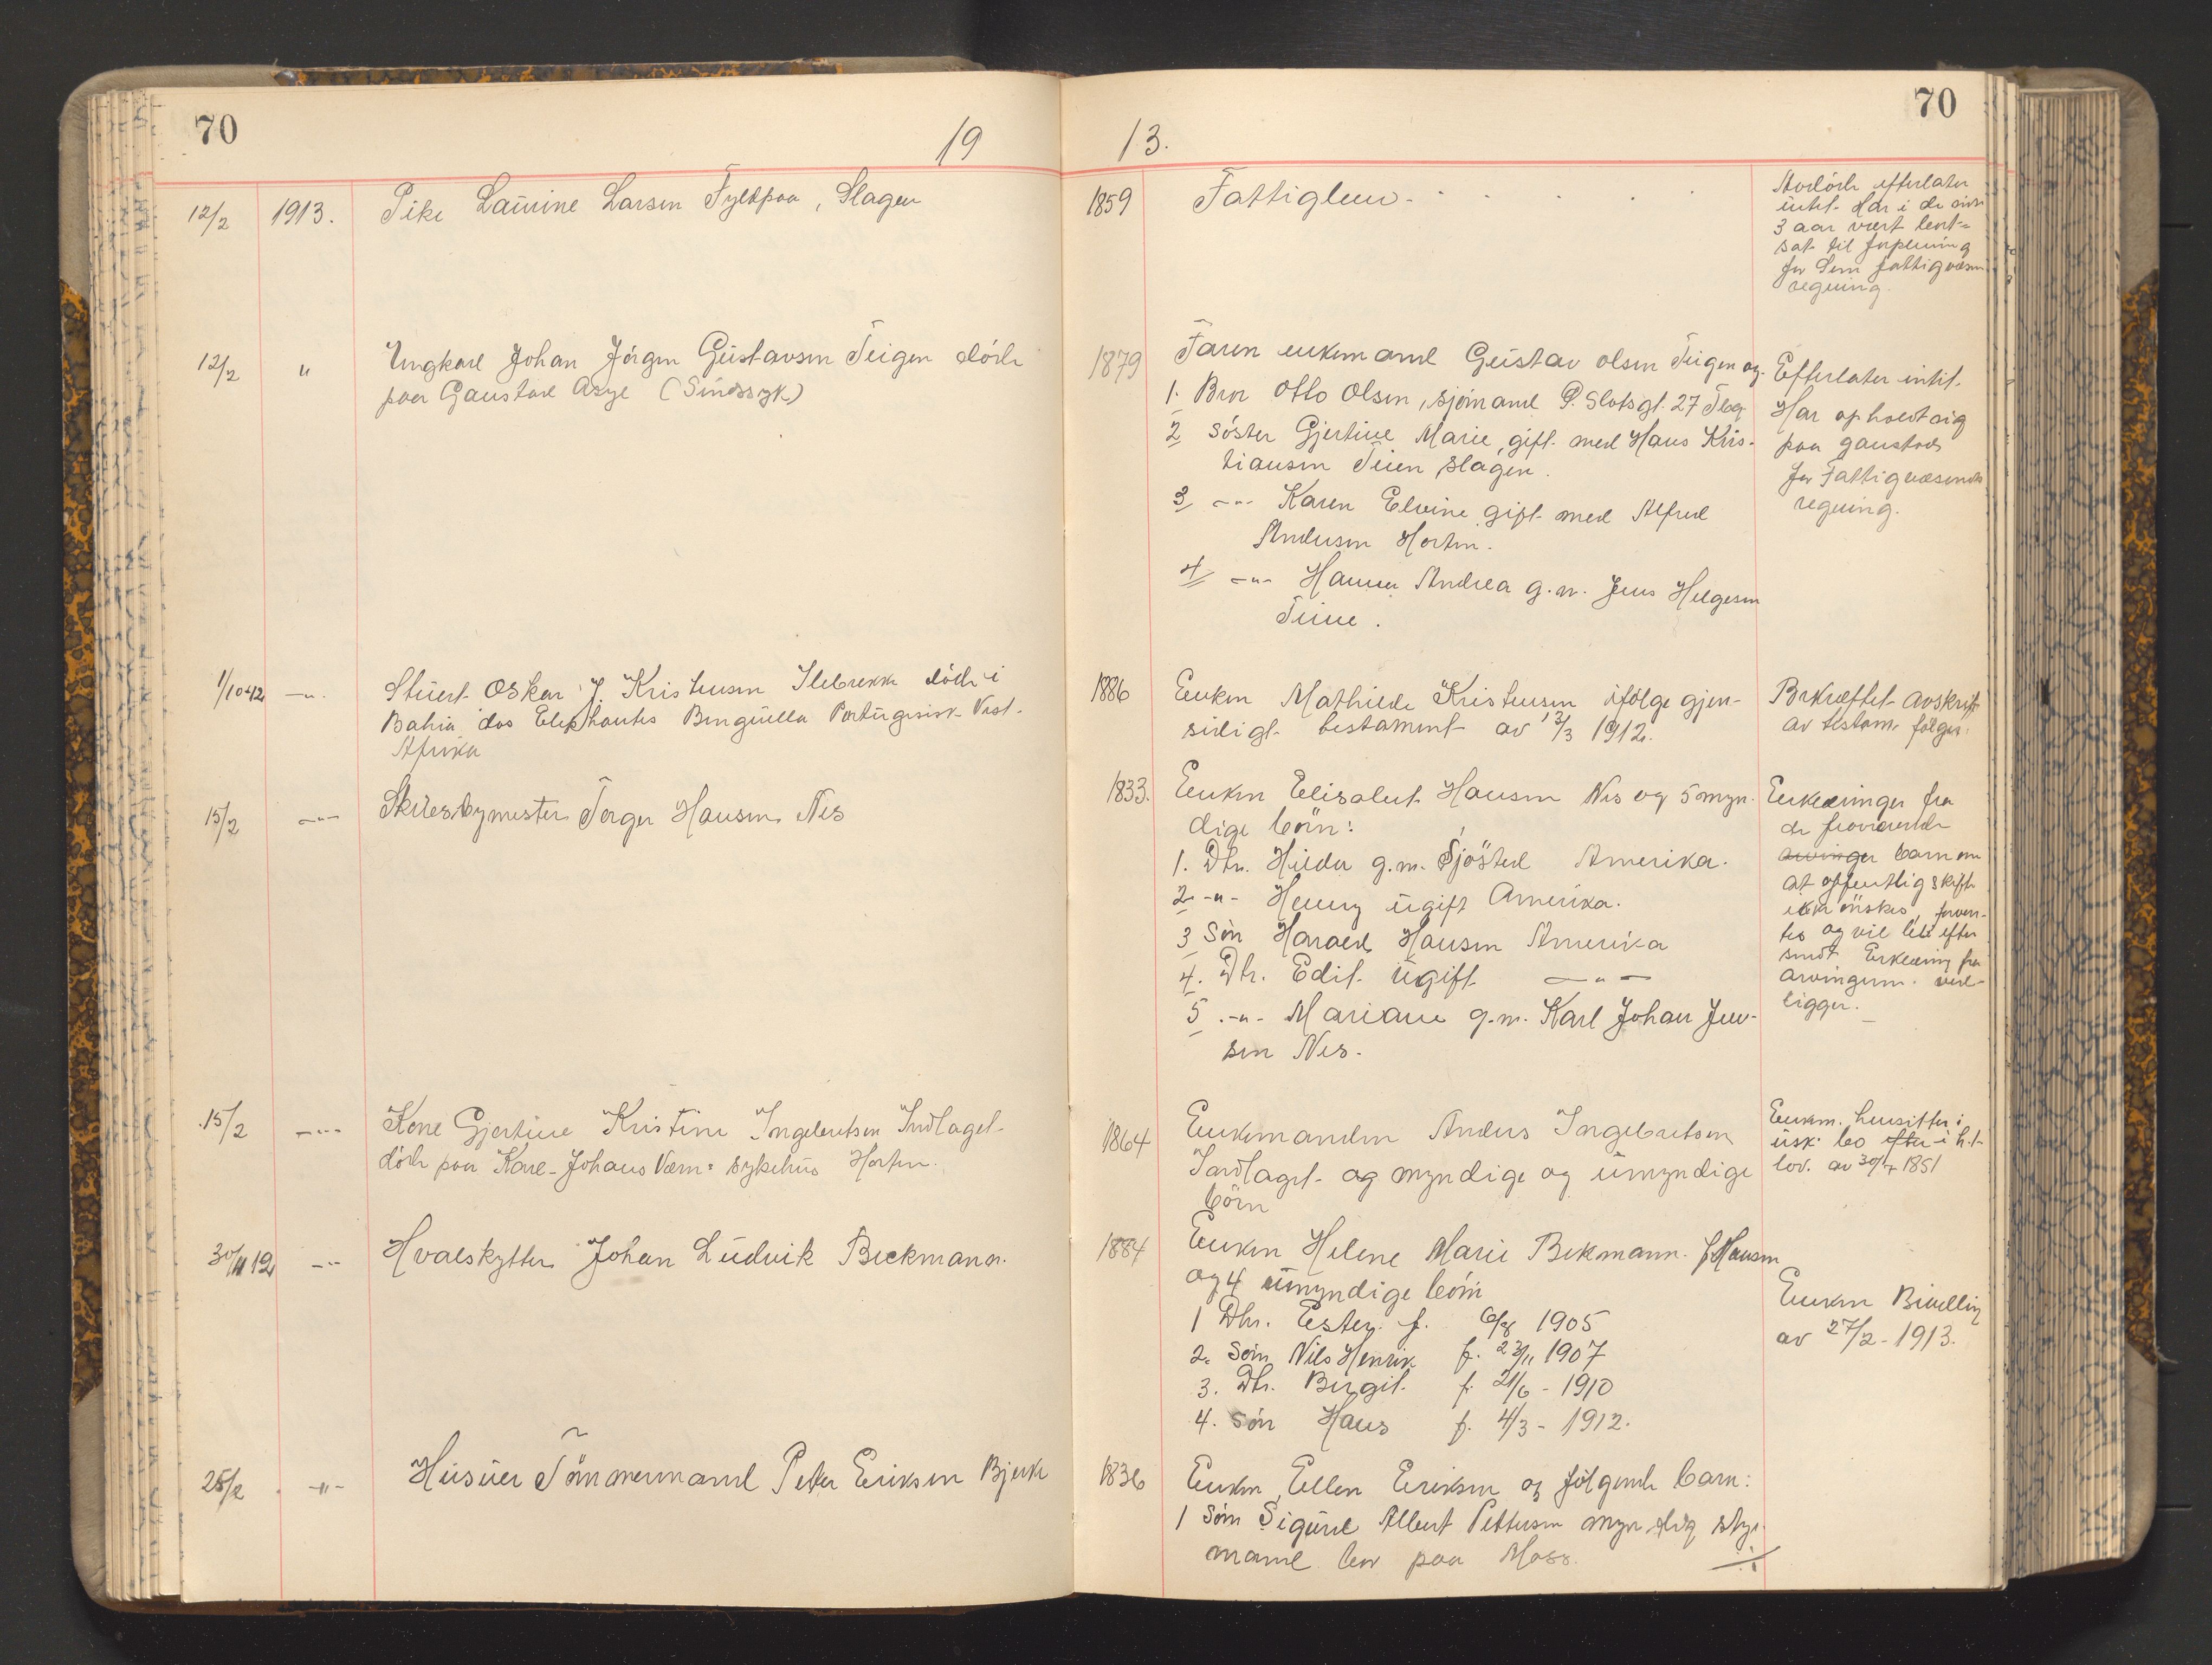 70
19
13.
70
12/2 1913. Pike Laurine Larsen Fyldpaa, Slagen
1859 Fattiglem -
Avdöde efterlater
intet. Har i de sidste
3 aar været bort-
sat til forpleining
for Sem fattigvæsens
regning.
12/2 " Ungkarl Johan Jörgen Gustavsen Teigen döde
paa Gaustad Asyl (Sindssyk)
1879 Faren enkemand Gustav Olsen Teigen og
1. Bror Otto Olsen, sjömand P. Slotsgt. 27 Tbg
2 Söster Gjertine Marie gift med Hans Kris-
tiansen Teien Slagen.
3 -"- Karen Elvine gift med Alfred
Andersen Horten.
4 -"- Hanna Andrea g.m. Jens Helgesen
Teine.
Efterlater intet.
Har opholdt sig
paa Gaustad
for Fattigvæsenets
regning.
1/10-12 -"- Stuert Oskar J. Kristensen Ilebrekke döde i
Bahia dos Elephantes Benguella Portugisisk Vest-
Afrika
1886 Enken Mathilde Kristensen ifölge gjen-
sidigt testament av 13/3 1912.
Bekræftet avskrift
av testam. fölger.
15/2 -"- Skibsbymester Terger Hansen Nes
1833. Enken Elisabet Hansen Nes og 5 myn-
dige börn:
1. Dtr. Hilda g.m. Sjösted Amerika.
2 -"- Henny ugift Amerika.
3 Sön Harald Hansen Amerika
4. Dtr. Edit ugift -"-
5 -"- Mariane g.m. Karl Johan Jen-
sen Nes.
Erklæringer fra
de fraværende
arvinger barn om
at offentlig skifte
ikke önskes, forven-
tes og vil bli efter
sendt Erklæring fra
arvingerne ved-
ligger.
15/2 -"- Kone Gjertine Kristine Ingebretsen Indlaget
döde paa Karl-Johans Værn's sykehus Horten.
1864 Enkemanden Anders Ingebretsen
Indlaget og myndige og umyndige
börn
Enkem. hensitter i
usk. bo efter i h.t.
lov. av 30/7 1851
30/11 12 -"- Hvalskytter Johan Ludvik Beckmann.
1884 Enken Helene Marie Bekmann f. Hansen
og 4 umyndige börn
1 Dtr. Ester f. 6/8 1905
2. Sön Nils Henrik f. 23/11 1907
3. Dtr. Birgit f. 21/6 - 1910
4. Sön Hans f. 4/3 - 1912.
Enken Bevilling
av 27/2 - 1913.
25/2 -"- Huseier Tömmermand Peter Eriksen Bjerke
1836 Enken Ellen Eriksen og fölgende barn:
1 Sön Sigurd Albert Pettersen myndig styr-
mand bor paa Moss.